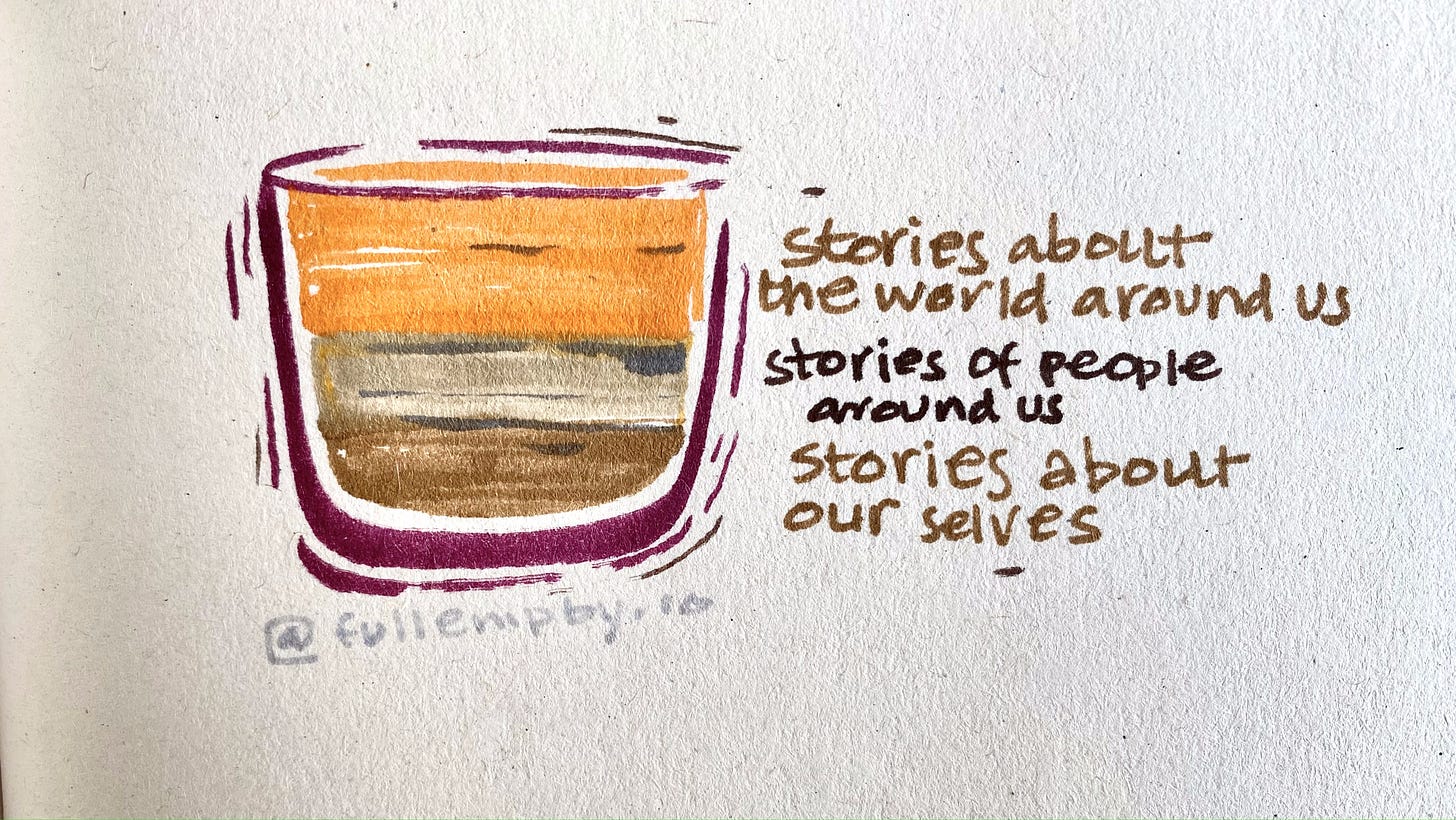 stories about
the world around us
stories of people
around us
stories about
our selves
@fullempty.io